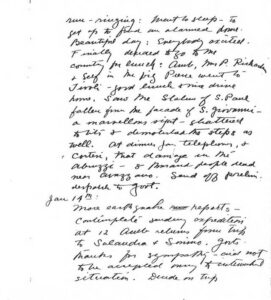 ringing: Went to sleep - to
get up to find an alarmed house.
Beautiful day: Everybody excited.
Finally decided to go to the
country for lunch: Amb, Mrs P, Richardson
& self in the big Pierce went to
Tivoli - good lunch & nice drive
home. Saw the Statue of S. Paul
fallen from the facade of S. Giovanni -
a marvellous sight - shattered
to bits & demolished the steps as
well. At dinner Jay telephones, &
Cortesi, that damage in the
Abruzzi - thousand people dead
near Avezzano. Send off prelim.
despatch to Govt.
Jan 14th:
More earthquake reports -
contemplate sending expedition
at 12 Amb returns from trip
to Salandra & Sonnino. Gets
thanks for sympathy - aid not
to be accepted owing to
situation. Decide on trip